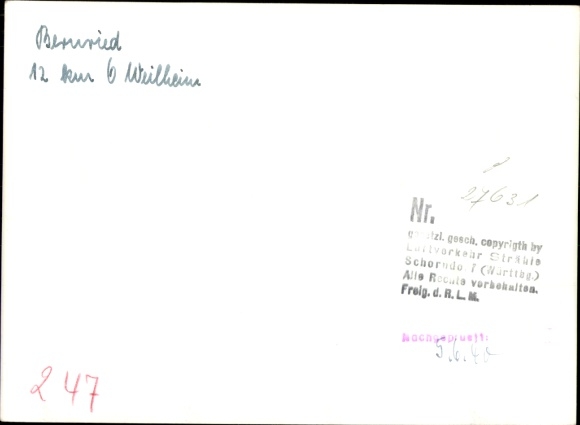 Bernried
12 km ö Weilheim
27631
Nr.
gesetzl. gesch. copyrigth by
Luftverkehr Strähle
Schorndorf (Württbg.)
Alle Rechte vorbehalten.
Freig. d. R. L. M.
Nachgeprüft:
247